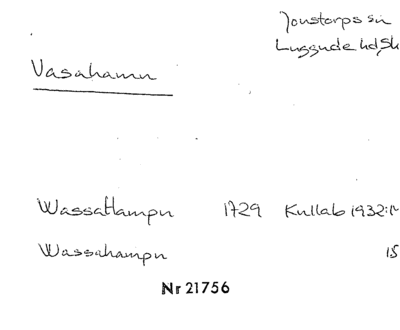 Jonstorps sn
Luggude hd, Sk
Vasahamn
Wassahampn 1729 Kullab 1932:1
Wassahampn 15
Nr 21756